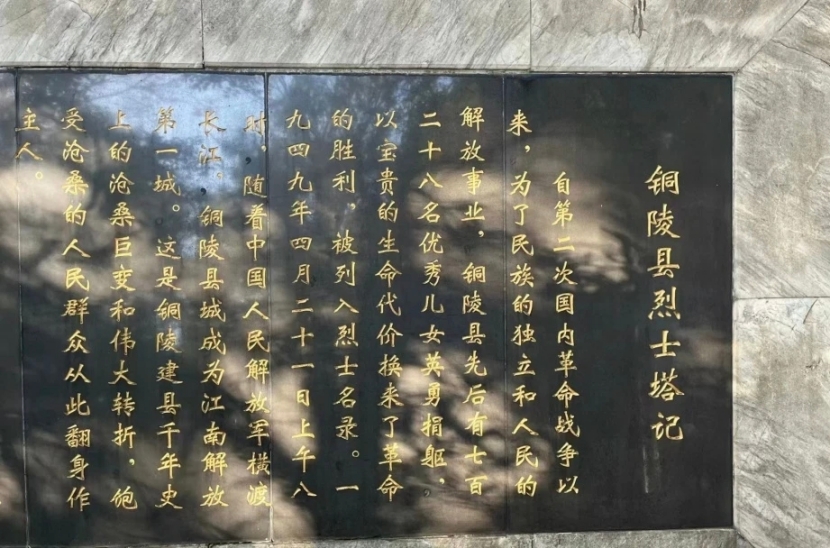 铜陵县烈士塔记
自第二次国内革命战争以
来，为了民族的独立和人民的
解放事业，铜陵县先后有七百
二十八名优秀儿女英勇捐躯，
以宝贵的生命代价换来了革命
的胜利，被列入烈士名录。一
九四九年四月二十一日上午八
时，随着中国人民解放军横渡
长江，铜陵县城成为江南解放
第一城。这是铜陵建县千年史
上的沧桑巨变和伟大转折，饱
受沧桑的人民群众从此翻身作
主人。